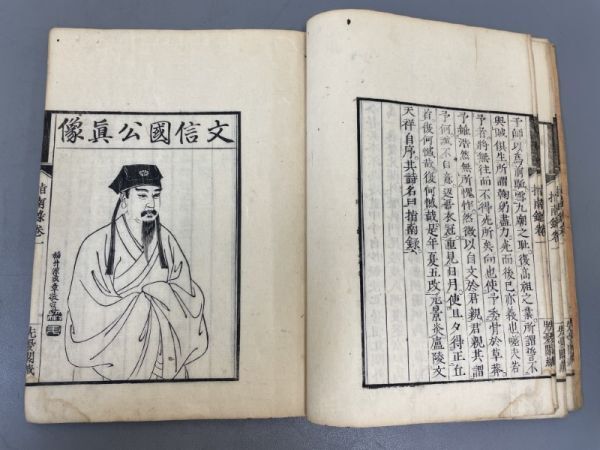 于師以爲前驅雪九廟之恥復高祖之業所謂誓不
與賊俱生所謂鞠躬盡力死而後已亦義也嗟夫若
予者將無往而不得死所矣向也使予委骨於草莽
予雖浩然無所愧怍然微以自文於君親君親其謂
予何誠不自意返吾衣冠重見日月使旦夕得正丘
首復何憾哉復何憾哉是年夏五改元景炎廬陵文
天祥自序其詩名曰指南錄
指南錄卷一
文信國公眞像
指南錄卷一